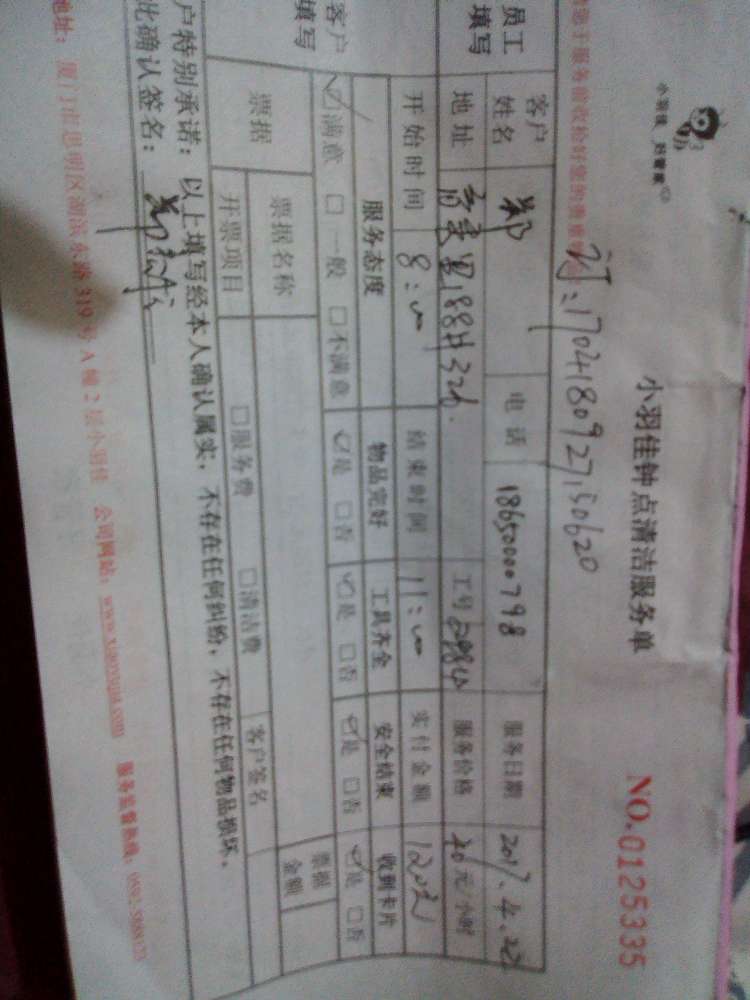 小羽佳 好管家
小羽佳钟点清洁服务单
NO.0125335
订:1704180927150620
员工填写
客户姓名 郑 电话 18650000798 服务日期 2017.4.22
地址 工号 服务价格 40元/小时
开始时间 8:00 结束时间 11:00 实付金额 120元
客户填写
服务态度 物品完好 工具齐全 安全结束 收到卡片
☑满意 □一般 □不满意 ☑是 □否 ☑是 □否 ☑是 □否 ☑是 □否
票据 票据名称 票据金额
开票项目 □服务费 □清洁费 客户签名
户特别承诺:以上填写经本人确认属实,不存在任何纠纷,不存在任何物品损坏。
此确认签名:
地址:厦门市思明区湖滨东路319号A幢2层小羽佳 公司网站:www.xiaoyujia.com 服务监督热线: